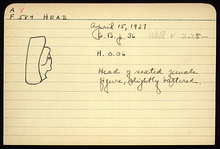 A V
F 589 HEAD
April 15, 1927
N.B. p. 36
Well V 2.25
H. 0.06
Head of seated female
figure, slightly battered.